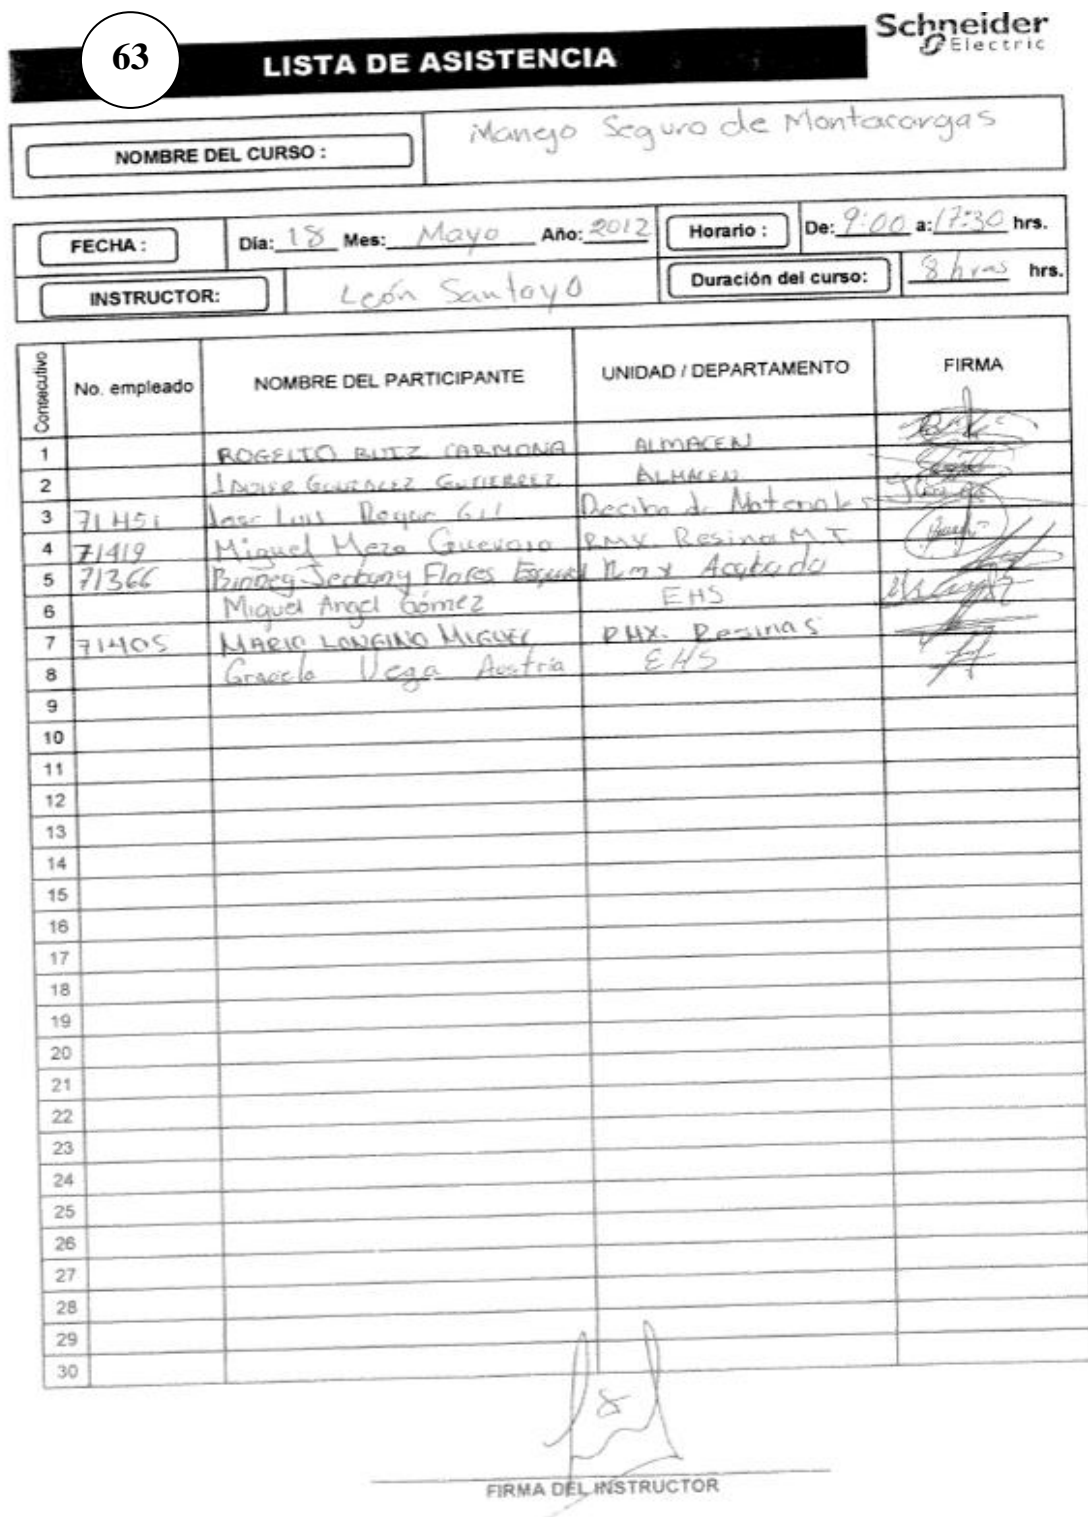 63
LISTA DE ASISTENCIA
Schneider
Electric
NOMBRE DEL CURSO :
Manejo Seguro de Montacargas
FECHA : Día: 18 Mes: Mayo Año: 2012 Horario : De: 9:00 a: 17:30 hrs.
INSTRUCTOR: León Santoyo Duración del curso: 8 hras hrs.
Consecutivo No. empleado NOMBRE DEL PARTICIPANTE UNIDAD / DEPARTAMENTO FIRMA
1 ROGELIO RUIZ CARMONA ALMACEN
2 JAVIER GONZALEZ GUTIERREZ ALMACEN
3 71451 Jose Luis Roque Gil Materiales
4 71419 Miguel Meza Guevara RMX. Resina M.T
5 71366 Flores Rmx Acabado
6 Miguel Angel Gómez EHS
7 71405 MARIO LONGINO MIGUEL RMX. Resinas
8 Graciela Vega Austria EHS
9
10
11
12
13
14
15
16
17
18
19
20
21
22
23
24
25
26
27
28
29
30
FIRMA DEL INSTRUCTOR